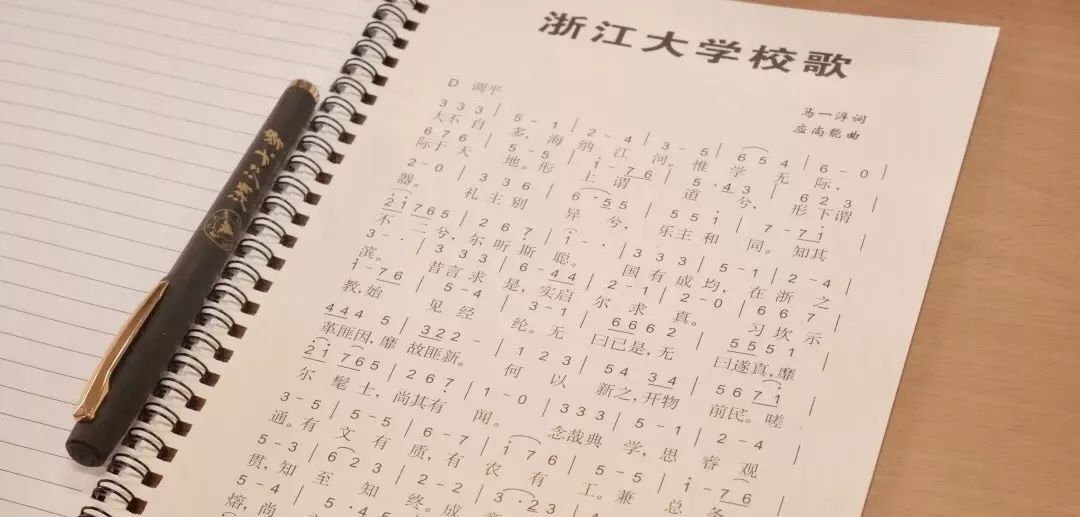 浙江大学校歌
D 调平
马一浮词
应尚能曲
3 3 3 | 5 - 1 | 2 - 4 | 3 - 5 | 6 5 4 | 6 - 0 |
大不自 多，海 纳 江 河。惟 学 无 际，
6 7 6 | 5 - 5 | 1̇ - 7 6 | 5 · 4 3 | 6 2 3 |
际于天 地。形 上 谓 道 兮，形下谓
2 - 0 | 3 3 6 | 6 · 5 5 | 5 5 1̇ | 7 - 7 1̇ |
器。 礼主别 异 兮，乐主和 同。知其
2̇ 1̇ 7 6 5 | 2 6 7 | 1̇ - · | 3 3 3 | 5 - 1 | 2 - 4 |
不 二 兮，尔听斯 聪。 国有成 均，在 浙 之
3 - · | 3 3 3 | 6 - 4 4 | 2 - 1 | 2 - 0 | 6 6 7 |
滨。 昔言求 是，实启 尔 求 真。 习坎示
1̇ - 7 6 | 5 - 4 | 3 - 1 | 6 6 6 2 | 5 5 5 1 |
教，始 见 经 纶。无 曰已是，无 曰遂真，靡
4 4 4 5 | 3 2 2 - | 1 2 3 | 5 4 3 4 | 5 6 7 1̇ |
革匪因，靡 故匪新。 何 以 新之，开物 前民。嗟
2̇ 1̇ 7 6 5 | 2 6 7 | 1 - 0 | 3 3 3 | 5 - 1 | 2 - 4 |
尔 髦士，尚其有 闻。 念哉典 学，思 睿 观
3 - 5 | 5 - 5 | 6 - 7 | 1̇ 7 6 | 5 - 5 | 1̇ - 7 6 |
通。有 文 有 质，有 农 有 工。兼 总 条
5 - 3 | 6 2 3 | 2 - 2 | 3 · 2 3 |
贯，知 至 知 终。成
5 - 4
熔，尚
浙江大学